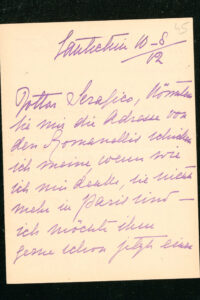 Lautschin 10–8
12
Dottor Serafico, Könnten
Sie mir die Adresse von
den Romanellis schicken
ich meine wenn wie
ich mir denke, sie nicht
mehr in Paris sind –
ich möchte ihm
gerne schon jetzt eine